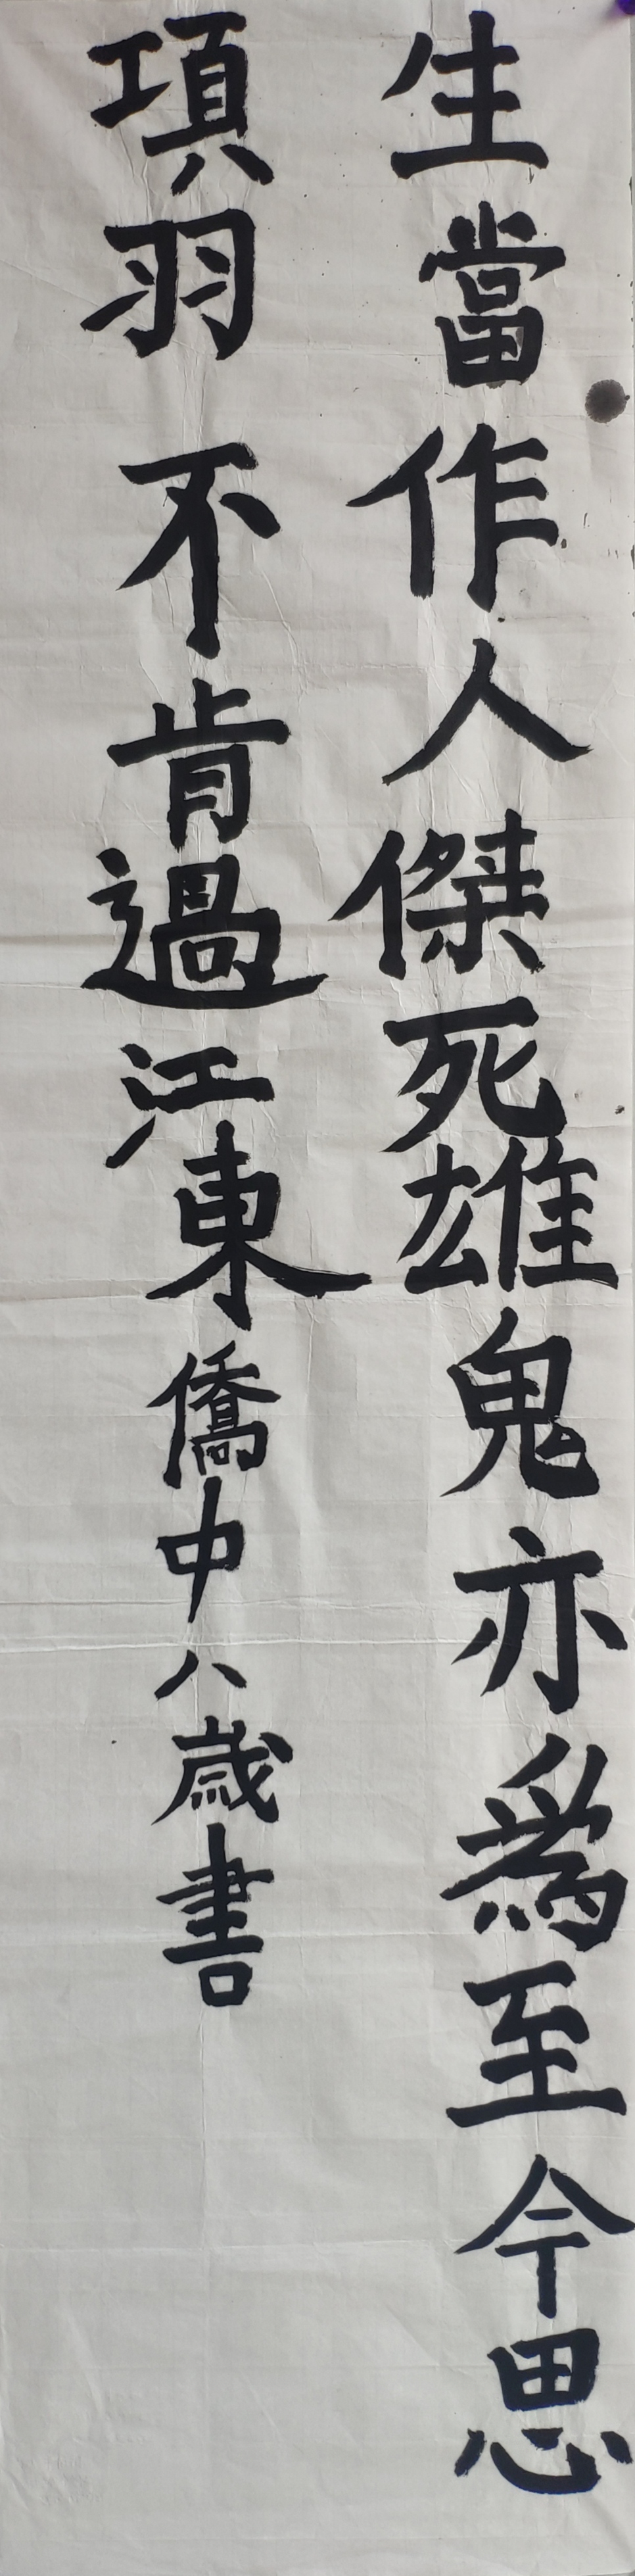 生當作人傑死雄鬼亦為至今思
項羽不肯過江東僑中八歲書